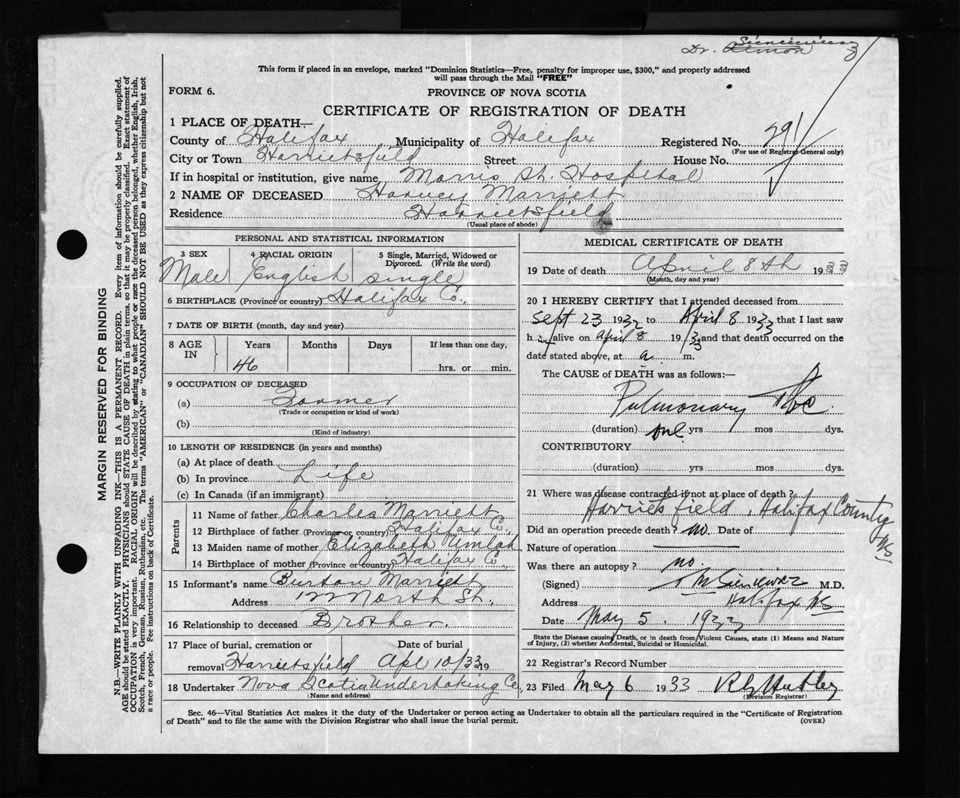 Dr. Almon
This form if placed in an envelope, marked "Dominion Statistics—Free, penalty for improper use, $300," and properly addressed
will pass through the Mail "FREE"
FORM 6.
PROVINCE OF NOVA SCOTIA
CERTIFICATE OF REGISTRATION OF DEATH
1 PLACE OF DEATH—
County of Halifax Municipality of Halifax Registered No. 291
(For use of Registrar General only)
City or Town Harrietsfield Street House No.
If in hospital or institution, give name Morris St. Hospital
2 NAME OF DECEASED Harvey Marriett
Residence Harrietsfield
(Usual place of abode)
PERSONAL AND STATISTICAL INFORMATION
3 SEX 4 RACIAL ORIGIN 5 Single, Married, Widowed or
Divorced. (Write the word)
Male English single
6 BIRTHPLACE (Province or country) Halifax Co.
7 DATE OF BIRTH (month, day and year)
8 AGE IN Years Months Days If less than one day,
46 hrs. or min.
9 OCCUPATION OF DECEASED
(a) Farmer
(Trade or occupation or kind of work)
(b)
(Kind of industry)
10 LENGTH OF RESIDENCE (in years and months)
(a) At place of death
(b) In province Life
(c) In Canada (if an immigrant)
Parents
11 Name of father Charles Marriett
12 Birthplace of father (Province or country) Halifax Co.
13 Maiden name of mother Elizabeth Umlah
14 Birthplace of mother (Province or country) Halifax Co.
15 Informant's name Burton Marriett
Address North St.
16 Relationship to deceased Brother.
17 Place of burial, cremation or Date of burial
removal Harrietsfield Apl 10/33 19
18 Undertaker Nova Scotia Undertaking Co
(Name and address)
MEDICAL CERTIFICATE OF DEATH
19 Date of death April 8th 193
(Month, day and year)
20 I HEREBY CERTIFY that I attended deceased from
Sept 23 1932 to April 8 1933 that I last saw
h im alive on April 8 1933 and that death occurred on the
date stated above, at a. m.
The CAUSE of DEATH was as follows:—
Pulmonary Tbc.
(duration) one yrs mos dys.
CONTRIBUTORY
(duration) yrs mos dys.
21 Where was disease contracted if not at place of death?
Harrietsfield, Halifax County NS
Did an operation precede death? no. Date of
Nature of operation
Was there an autopsy? no.
(Signed) M.D.
Address Halifax NS
Date May 5. 1933
State the Disease causing Death, or in death from Violent Causes, state (1) Means and Nature
of Injury, (2) whether Accidental, Suicidal or Homicidal.
22 Registrar's Record Number
23 Filed May 6 1933
(Division Registrar)
Sec. 46—Vital Statistics Act makes it the duty of the Undertaker or person acting as Undertaker to obtain all the particulars required in the "Certificate of Registration
of Death" and to file the same with the Division Registrar who shall issue the burial permit.
(OVER)
MARGIN RESERVED FOR BINDING
N.B.—WRITE PLAINLY WITH UNFADING INK—THIS IS A PERMANENT RECORD. Every item of information should be carefully supplied.
AGE should be stated EXACTLY. PHYSICIANS should STATE CAUSE OF DEATH in plain terms, so that it may be properly classified. Exact statement of
OCCUPATION is very important. RACIAL ORIGIN will be described by stating to what people or race the deceased person belonged, whether English, Irish,
Scotch, French, German, Russian, Ruthenian, etc. The terms "AMERICAN" or "CANADIAN" SHOULD NOT BE USED as they express citizenship but not
a race or people. See instructions on back of Certificate.